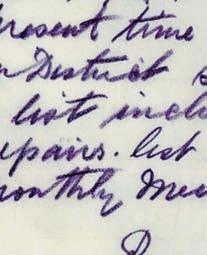 present time
District s
list inclu
epairs. list
monthly Mee